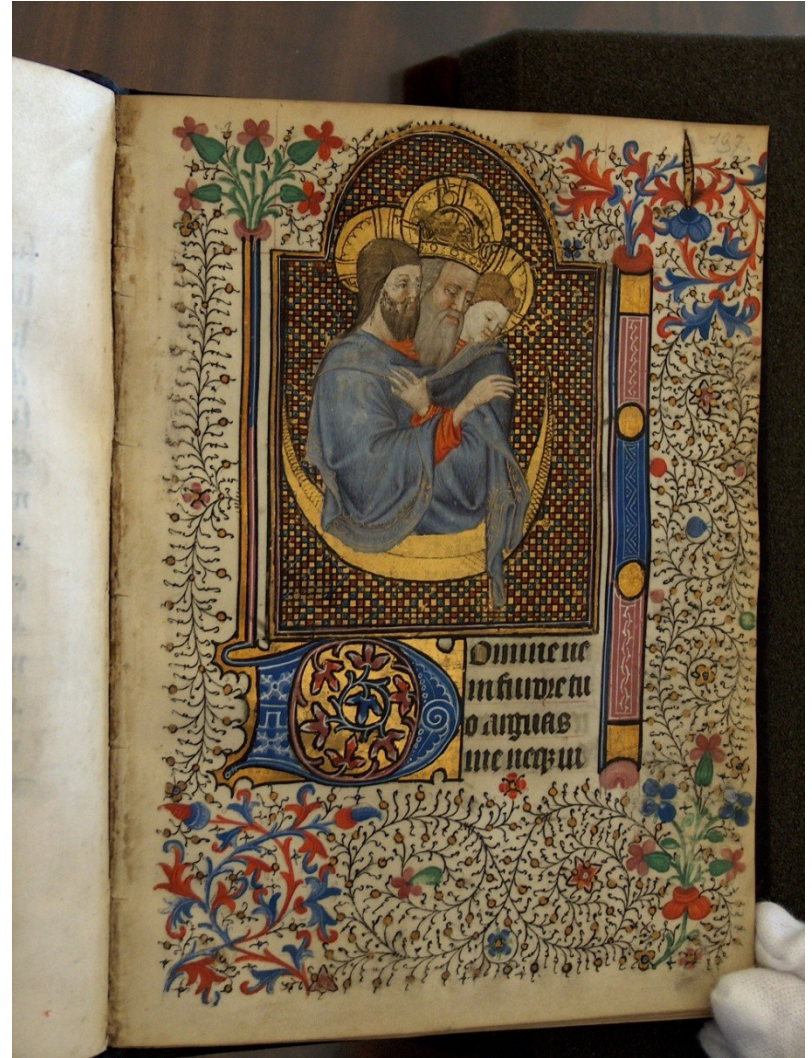 197
Domine ne
in furore tu
o arguas
me neqȝ in